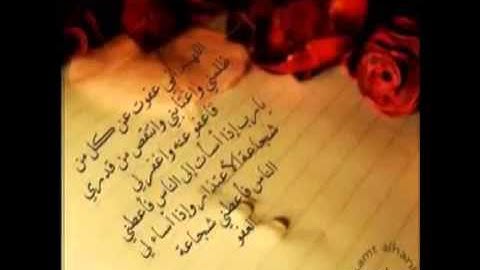 اللهم إني عفوت عن كل من
ظلمني واغتابني وانتقص من قدري
فاعفو عنه واغفر لي
يا رب إذا أسأت إلى الناس فأعطني
شجاعة الاعتذار وإذا أساء لي
الناس فأعطني شجاعة
العفو